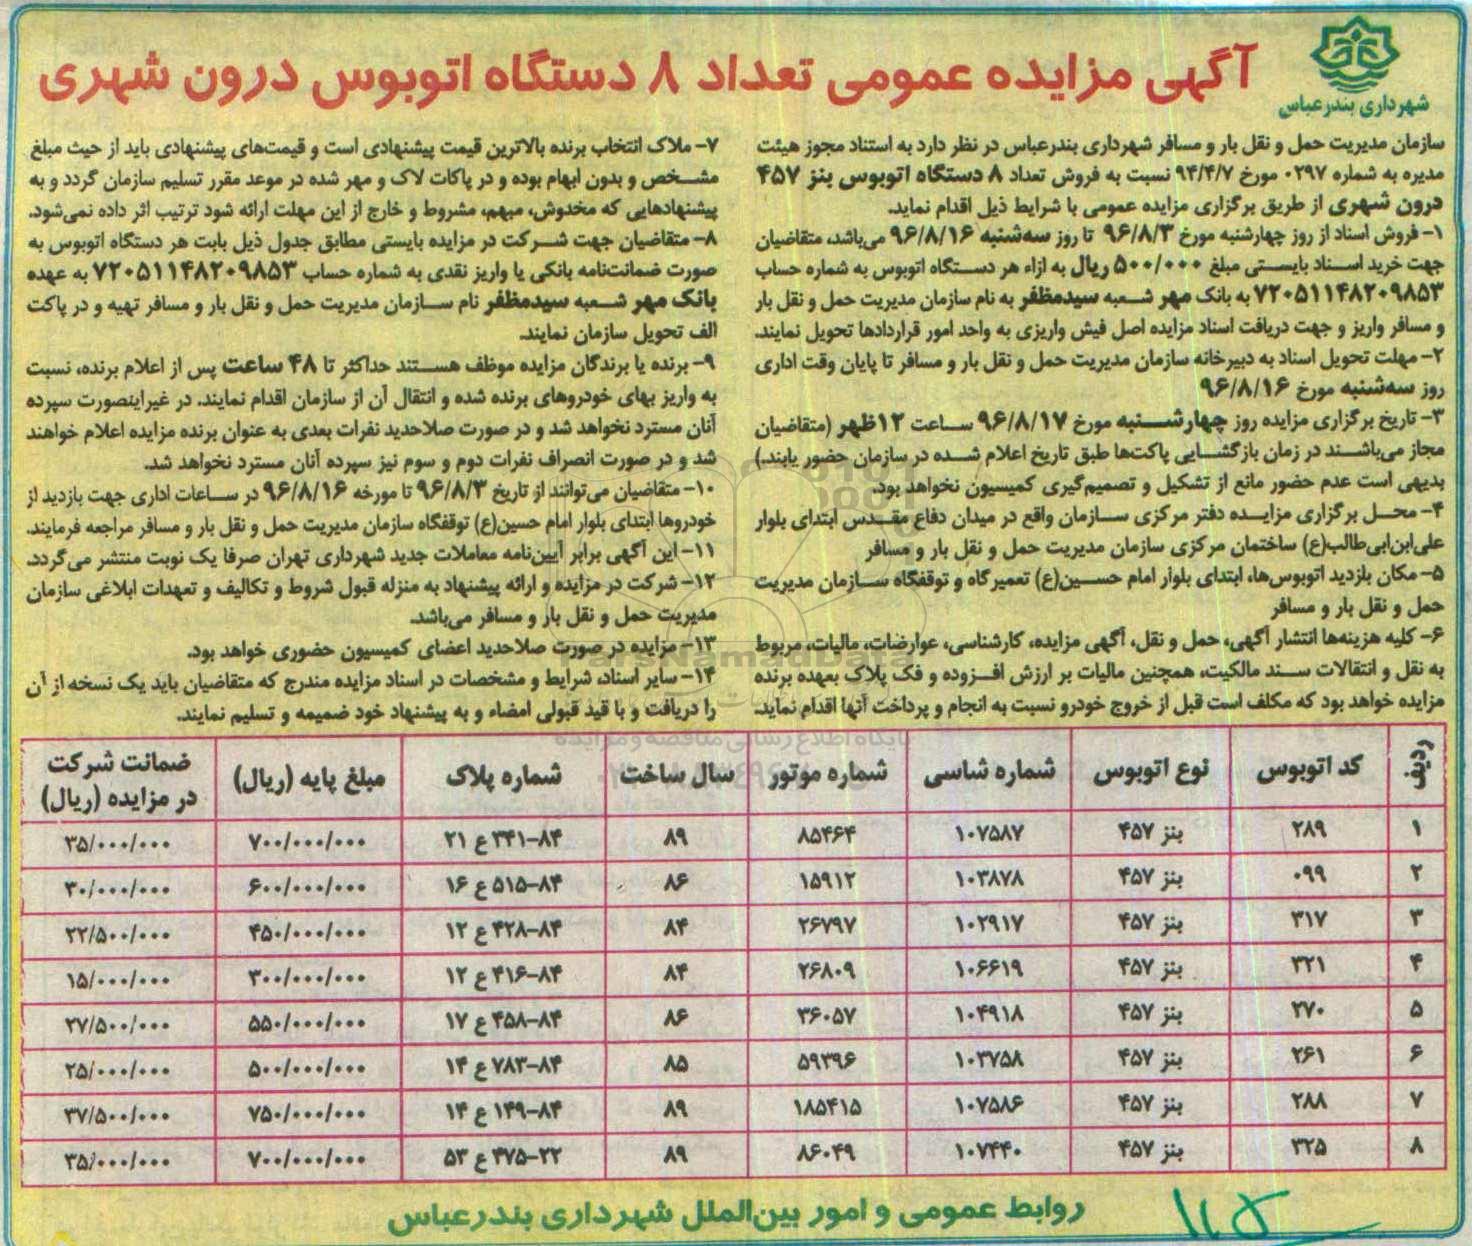 شهرداری بندرعباس
آگهی مزایده عمومی تعداد ۸ دستگاه اتوبوس درون شهری
سازمان مدیریت حمل و نقل بار و مسافر شهرداری بندرعباس در نظر دارد به استناد مجوز هیئت
مدیره به شماره ۰۲۹۷ مورخ ۹۴/۴/۷ نسبت به فروش تعداد ۸ دستگاه اتوبوس بنز ۴۵۷
درون شهری از طریق برگزاری مزایده عمومی با شرایط ذیل اقدام نماید.
۱- فروش اسناد از روز چهارشنبه مورخ ۹۶/۸/۳ تا روز سه‌شنبه ۹۶/۸/۱۶ می‌باشد، متقاضیان
جهت خرید اسناد بایستی مبلغ ۵۰۰/۰۰۰ ریال به ازاء هر دستگاه اتوبوس به شماره حساب
۷۲۰۵۱۱۴۸۲۰۹۸۵۳ به بانک مهر شعبه سیدمظفر به نام سازمان مدیریت حمل و نقل بار
و مسافر واریز و جهت دریافت اسناد مزایده اصل فیش واریزی به واحد امور قراردادها تحویل نمایند.
۲- مهلت تحویل اسناد به دبیرخانه سازمان مدیریت حمل و نقل بار و مسافر تا پایان وقت اداری
روز سه‌شنبه مورخ ۹۶/۸/۱۶
۳- تاریخ برگزاری مزایده روز چهارشنبه مورخ ۹۶/۸/۱۷ ساعت ۱۲ظهر (متقاضیان
مجاز می‌باشند در زمان بازگشایی پاکت‌ها طبق تاریخ اعلام شده در سازمان حضور یابند.)
بدیهی است عدم حضور مانع از تشکیل و تصمیم‌گیری کمیسیون نخواهد بود.
۴- محل برگزاری مزایده دفتر مرکزی سازمان واقع در میدان دفاع مقدس ابتدای بلوار
علی‌ابن‌ابی‌طالب(ع) ساختمان مرکزی سازمان مدیریت حمل و نقل بار و مسافر
۵- مکان بازدید اتوبوس‌ها، ابتدای بلوار امام حسین(ع) تعمیرگاه و توقفگاه سازمان مدیریت
حمل و نقل بار و مسافر
۶- کلیه هزینه‌ها انتشار آگهی، حمل و نقل، آگهی مزایده، کارشناسی، عوارضات، مالیات، مربوط
به نقل و انتقالات سند مالکیت، همچنین مالیات بر ارزش افزوده و فک پلاک بعهده برنده
مزایده خواهد بود که مکلف است قبل از خروج خودرو نسبت به انجام و پرداخت آنها اقدام نماید.
۷- ملاک انتخاب برنده بالاترین قیمت پیشنهادی است و قیمت‌های پیشنهادی باید از حیث مبلغ
مشخص و بدون ابهام بوده و در پاکات لاک و مهر شده در موعد مقرر تسلیم سازمان گردد و به
پیشنهادهایی که مخدوش، مبهم، مشروط و خارج از این مهلت ارائه شود ترتیب اثر داده نمی‌شود.
۸- متقاضیان جهت شرکت در مزایده بایستی مطابق جدول ذیل بابت هر دستگاه اتوبوس به
صورت ضمانت‌نامه بانکی یا واریز نقدی به شماره حساب ۷۲۰۵۱۱۴۸۲۰۹۸۵۳ به عهده
بانک مهر شعبه سیدمظفر نام سازمان مدیریت حمل و نقل بار و مسافر تهیه و در پاکت
الف تحویل سازمان نمایند.
۹- برنده یا برندگان مزایده موظف هستند حداکثر تا ۴۸ ساعت پس از اعلام برنده، نسبت
به واریز بهای خودروهای برنده شده و انتقال آن از سازمان اقدام نمایند. در غیراینصورت سپرده
آنان مسترد نخواهد شد و در صورت صلاحدید نفرات بعدی به عنوان برنده مزایده اعلام خواهند
شد و در صورت انصراف نفرات دوم و سوم نیز سپرده آنان مسترد نخواهد شد.
۱۰- متقاضیان می‌توانند از تاریخ ۹۶/۸/۳ تا مورخه ۹۶/۸/۱۶ در ساعات اداری جهت بازدید از
خودروها ابتدای بلوار امام حسین(ع) توقفگاه سازمان مدیریت حمل و نقل بار و مسافر مراجعه فرمایند.
۱۱- این آگهی برابر آیین‌نامه معاملات جدید شهرداری تهران صرفا یک نوبت منتشر می‌گردد.
۱۲- شرکت در مزایده و ارائه پیشنهاد به منزله قبول شروط و تکالیف و تعهدات ابلاغی سازمان
مدیریت حمل و نقل بار و مسافر می‌باشد.
۱۳- مزایده در صورت صلاحدید اعضای کمیسیون حضوری خواهد بود.
۱۴- سایر اسناد، شرایط و مشخصات در اسناد مزایده مندرج که متقاضیان باید یک نسخه از آن
را دریافت و با قید قبولی امضاء و به پیشنهاد خود ضمیمه و تسلیم نمایند.
ParsNamadData
پایگاه اطلاع رسانی مناقصه و مزایده
ردیف کد اتوبوس نوع اتوبوس شماره شاسی شماره موتور سال ساخت شماره پلاک مبلغ پایه (ریال) ضمانت شرکت در مزایده (ریال)
۱ ۲۸۹ بنز ۴۵۷ ۱۰۷۵۸۷ ۸۵۴۶۴ ۸۹ ۸۴-۳۴۱ ع ۲۱ ۷۰۰/۰۰۰/۰۰۰ ۳۵/۰۰۰/۰۰۰
۲ ۰۹۹ بنز ۴۵۷ ۱۰۳۸۷۸ ۱۵۹۱۲ ۸۶ ۸۴-۵۱۵ ع ۱۶ ۶۰۰/۰۰۰/۰۰۰ ۳۰/۰۰۰/۰۰۰
۳ ۳۱۷ بنز ۴۵۷ ۱۰۲۹۱۷ ۲۶۷۹۷ ۸۴ ۸۴-۴۲۸ ع ۱۲ ۴۵۰/۰۰۰/۰۰۰ ۲۲/۵۰۰/۰۰۰
۴ ۳۲۱ بنز ۴۵۷ ۱۰۶۶۱۹ ۲۶۸۰۹ ۸۴ ۸۴-۴۱۶ ع ۱۲ ۳۰۰/۰۰۰/۰۰۰ ۱۵/۰۰۰/۰۰۰
۵ ۲۷۰ بنز ۴۵۷ ۱۰۴۹۱۸ ۳۶۰۵۷ ۸۶ ۸۴-۴۵۸ ع ۱۷ ۵۵۰/۰۰۰/۰۰۰ ۲۷/۵۰۰/۰۰۰
۶ ۲۶۱ بنز ۴۵۷ ۱۰۳۷۵۸ ۵۹۳۹۶ ۸۵ ۸۴-۷۸۳ ع ۱۴ ۵۰۰/۰۰۰/۰۰۰ ۲۵/۰۰۰/۰۰۰
۷ ۲۸۸ بنز ۴۵۷ ۱۰۷۵۸۶ ۱۸۵۴۱۵ ۸۹ ۸۴-۱۴۹ ع ۱۴ ۷۵۰/۰۰۰/۰۰۰ ۳۷/۵۰۰/۰۰۰
۸ ۳۲۵ بنز ۴۵۷ ۱۰۷۴۴۰ ۸۶۰۴۹ ۸۹ ۲۲-۴۷۵ ع ۵۳ ۷۰۰/۰۰۰/۰۰۰ ۳۵/۰۰۰/۰۰۰
روابط عمومی و امور بین‌الملل شهرداری بندرعباس